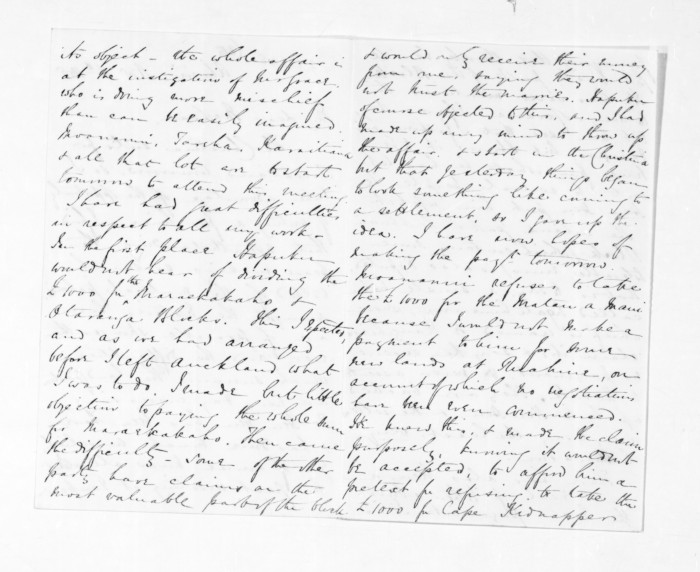 its object - the whole affair is
at the instigation of Mr Grace,
who is doing more mischief
than can be easily imagined.
Moananui, Tareha, Karaitiana
& all that lot are to start
tomorrow to attend this meeting
I have had great difficulties
in respect to all my work
In the first place Hapuku
would not hear of dividing the
£1000 for the Maraekakaho &
Otaranga Blocks. This I expected,
and as we had arranged
before I left Auckland what
I was to do, I made but little
objection to paying the whole sum
for Maraekakaho. Then came
the difficulty - some of the other
party have claims on the
most valuable part of the block
& would only receive their money
from me, saying they would
not trust the maories. Hapuku
of course objected to this, and I had
made up my mind to throw up
the affair & start in the Christina
but that yesterday things began
to look something like coming to
a settlement, so I gave up the
idea. I have now hopes of
making the payt tomorrow.
Moananui refuses to take
the £1000 for the Matau a Maui
because I would not make a
payment to him for some
new lands at Ruahine, on
account of which no negotiations
have been even commenced.
He knew this, & made the claim
purposely, knowing it would not
be accepted, to afford him a
pretext for refusing to take the
£1000 for Cape Kidnappers